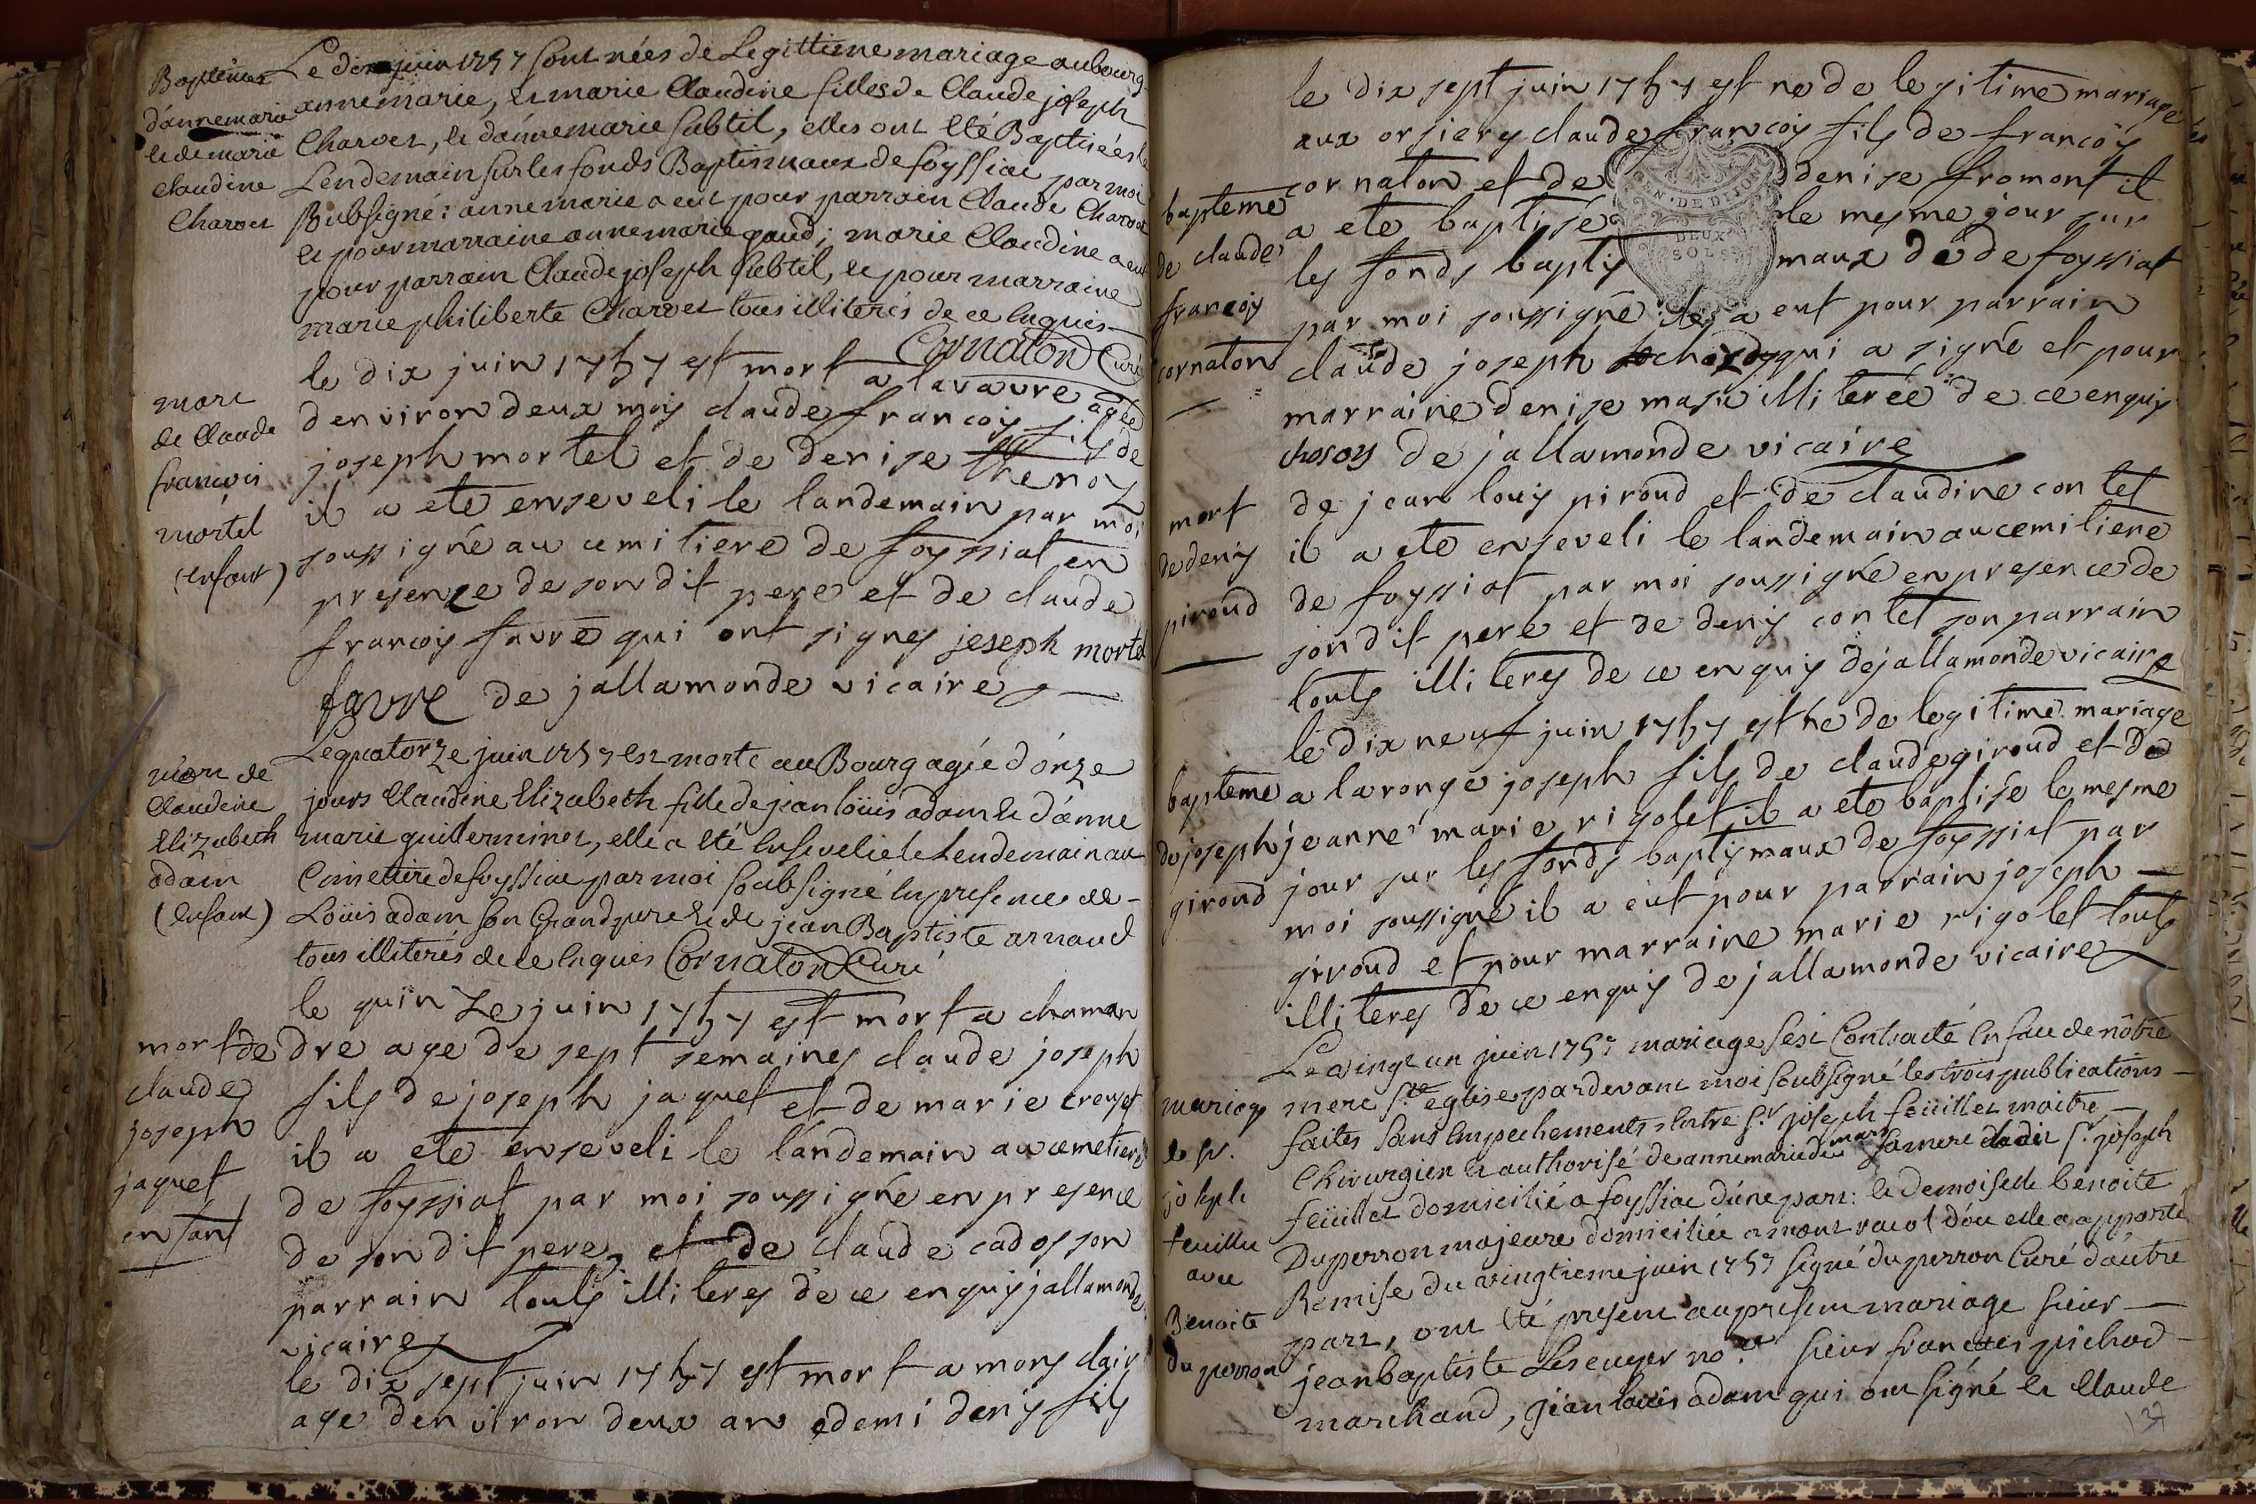 Baptêmes
d'annemarie
et de marie
claudine
Charvet
Le dix juin 1757 sont nées de Legittime mariage au bourg
anne marie, et marie Claudine filles de Claude joseph
Charvet, et d'anne marie subtil, elles ont été Baptisées le
Lendemain sur les fonds Baptismaux de foyssiat par moi
soubsigné: anne marie a eut pour parrain Claude Charvet
et pour marraine anne marie gaud; marie Claudine a eut
pour parrain Claude joseph subtil, et pour marraine
marie philiberte Charvet tous illiterés de ce enquis
Cornaton Curé
mort
de Claude
francois
mortel
(enfant)
le dix juin 1757 est mort a lavavre agée
denviron deux moys claude francoys fils de
joseph mortel et de denise thenoz
il a ete enseveli le landemain par moi
soussigné au cemitiere de foyssiat en
presence de son dit pere et de claude
francoys favre qui ont signes jeseph mortel
favre de jallamonde vicaire
mort de
Claudine
Elizabeth
adam
(enfant)
Le quatorze juin 1757 est morte au Bourg agée d'onze
jours Claudine Elizabeth fille de jean loüis adam et d'anne
marie guillerminet, elle a été ensevelie le Lendemain au
Cimetiere de foyssiat par moi soubsigné en presence de
Loüis adam son Grand pere et de jean Baptiste arnaud
tous illiterés de ce enquis Cornaton Curé
mort de
claude
joseph
jaquet
enfant
le quinze juin 1757 est mort a chaman
dre age de sept semaines claude joseph
fils de joseph jaquet et de marie creuset
il a ete enseveli le landemain au cemetiere
de foyssiat par moi soussigné en presence
de son dit pere, et de claude cadosson
parrain touts illiteres de ce enquis jallamonde
vicaire
le dix sept juin 1757 est mort a mons clair
age denviron deux an edemi denis fils
bapteme
de claude
francoy
cornaton
le dix sept juin 1757 est ne de legitime mariage
aux orsiery claude francoys fils de francoy
cornaton et de denise fromont il
a ete baptisé le mesme jour sur
les fonds baptismaux de de foyssiat
par moi soussigné il a eut pour parrain
claude joseph chosoy qui a signé et pour
marraine denise masu illiterée de ce enquis
chosoy de jallamonde vicaire
EN. DE DIJON
DEUX
SOLS
mort
de denis
piroud
de jean louis piroud et de claudine contet
il a ete enseveli le landemain au cemitiere
de foyssiat par moi soussigné en presence de
son dit pere et de denis contet son parrain
touts illiteres de ce enquis de jallamonde vicaire
bapteme
de joseph
giroud
le dix neuf juin 1757 est ne de legitime mariage
a laronge joseph fils de claude giroud et de
jeanne marie rigolet il a ete baptisé le mesme
jour sur les fonds baptismaux de foyssiat par
moi soussigné il a eut pour parrain joseph
giroud et pour marraine marie rigolet touts
illiteres de ce enquis de jallamonde vicaire
mariage
de sr.
joseph
feuillet
avec
Benoite
duperron
Le vingt un juin 1757 mariage s'est Contracté en face de nôtre
mere Ste eglise pardevant moi soubsigné les trois publications
faites sans empechements entre Sr joseph feüillet maitre
Chirurgien et authorisé de anne marie de mars sa mere dudit Sr joseph
feüillet domicilié a foyssiat d'une part: et demoiselle benoite
Duperron majeure domiciliée a mont racol d'ou elle a apporté
Remise du vingtieme juin 1757 signé duperron Curé d'autre
part, ont été present au present mariage sieur
jean baptiste Lescuyer nore sieur francois pichod
marchand, jean louis adam qui ont signé et Claude